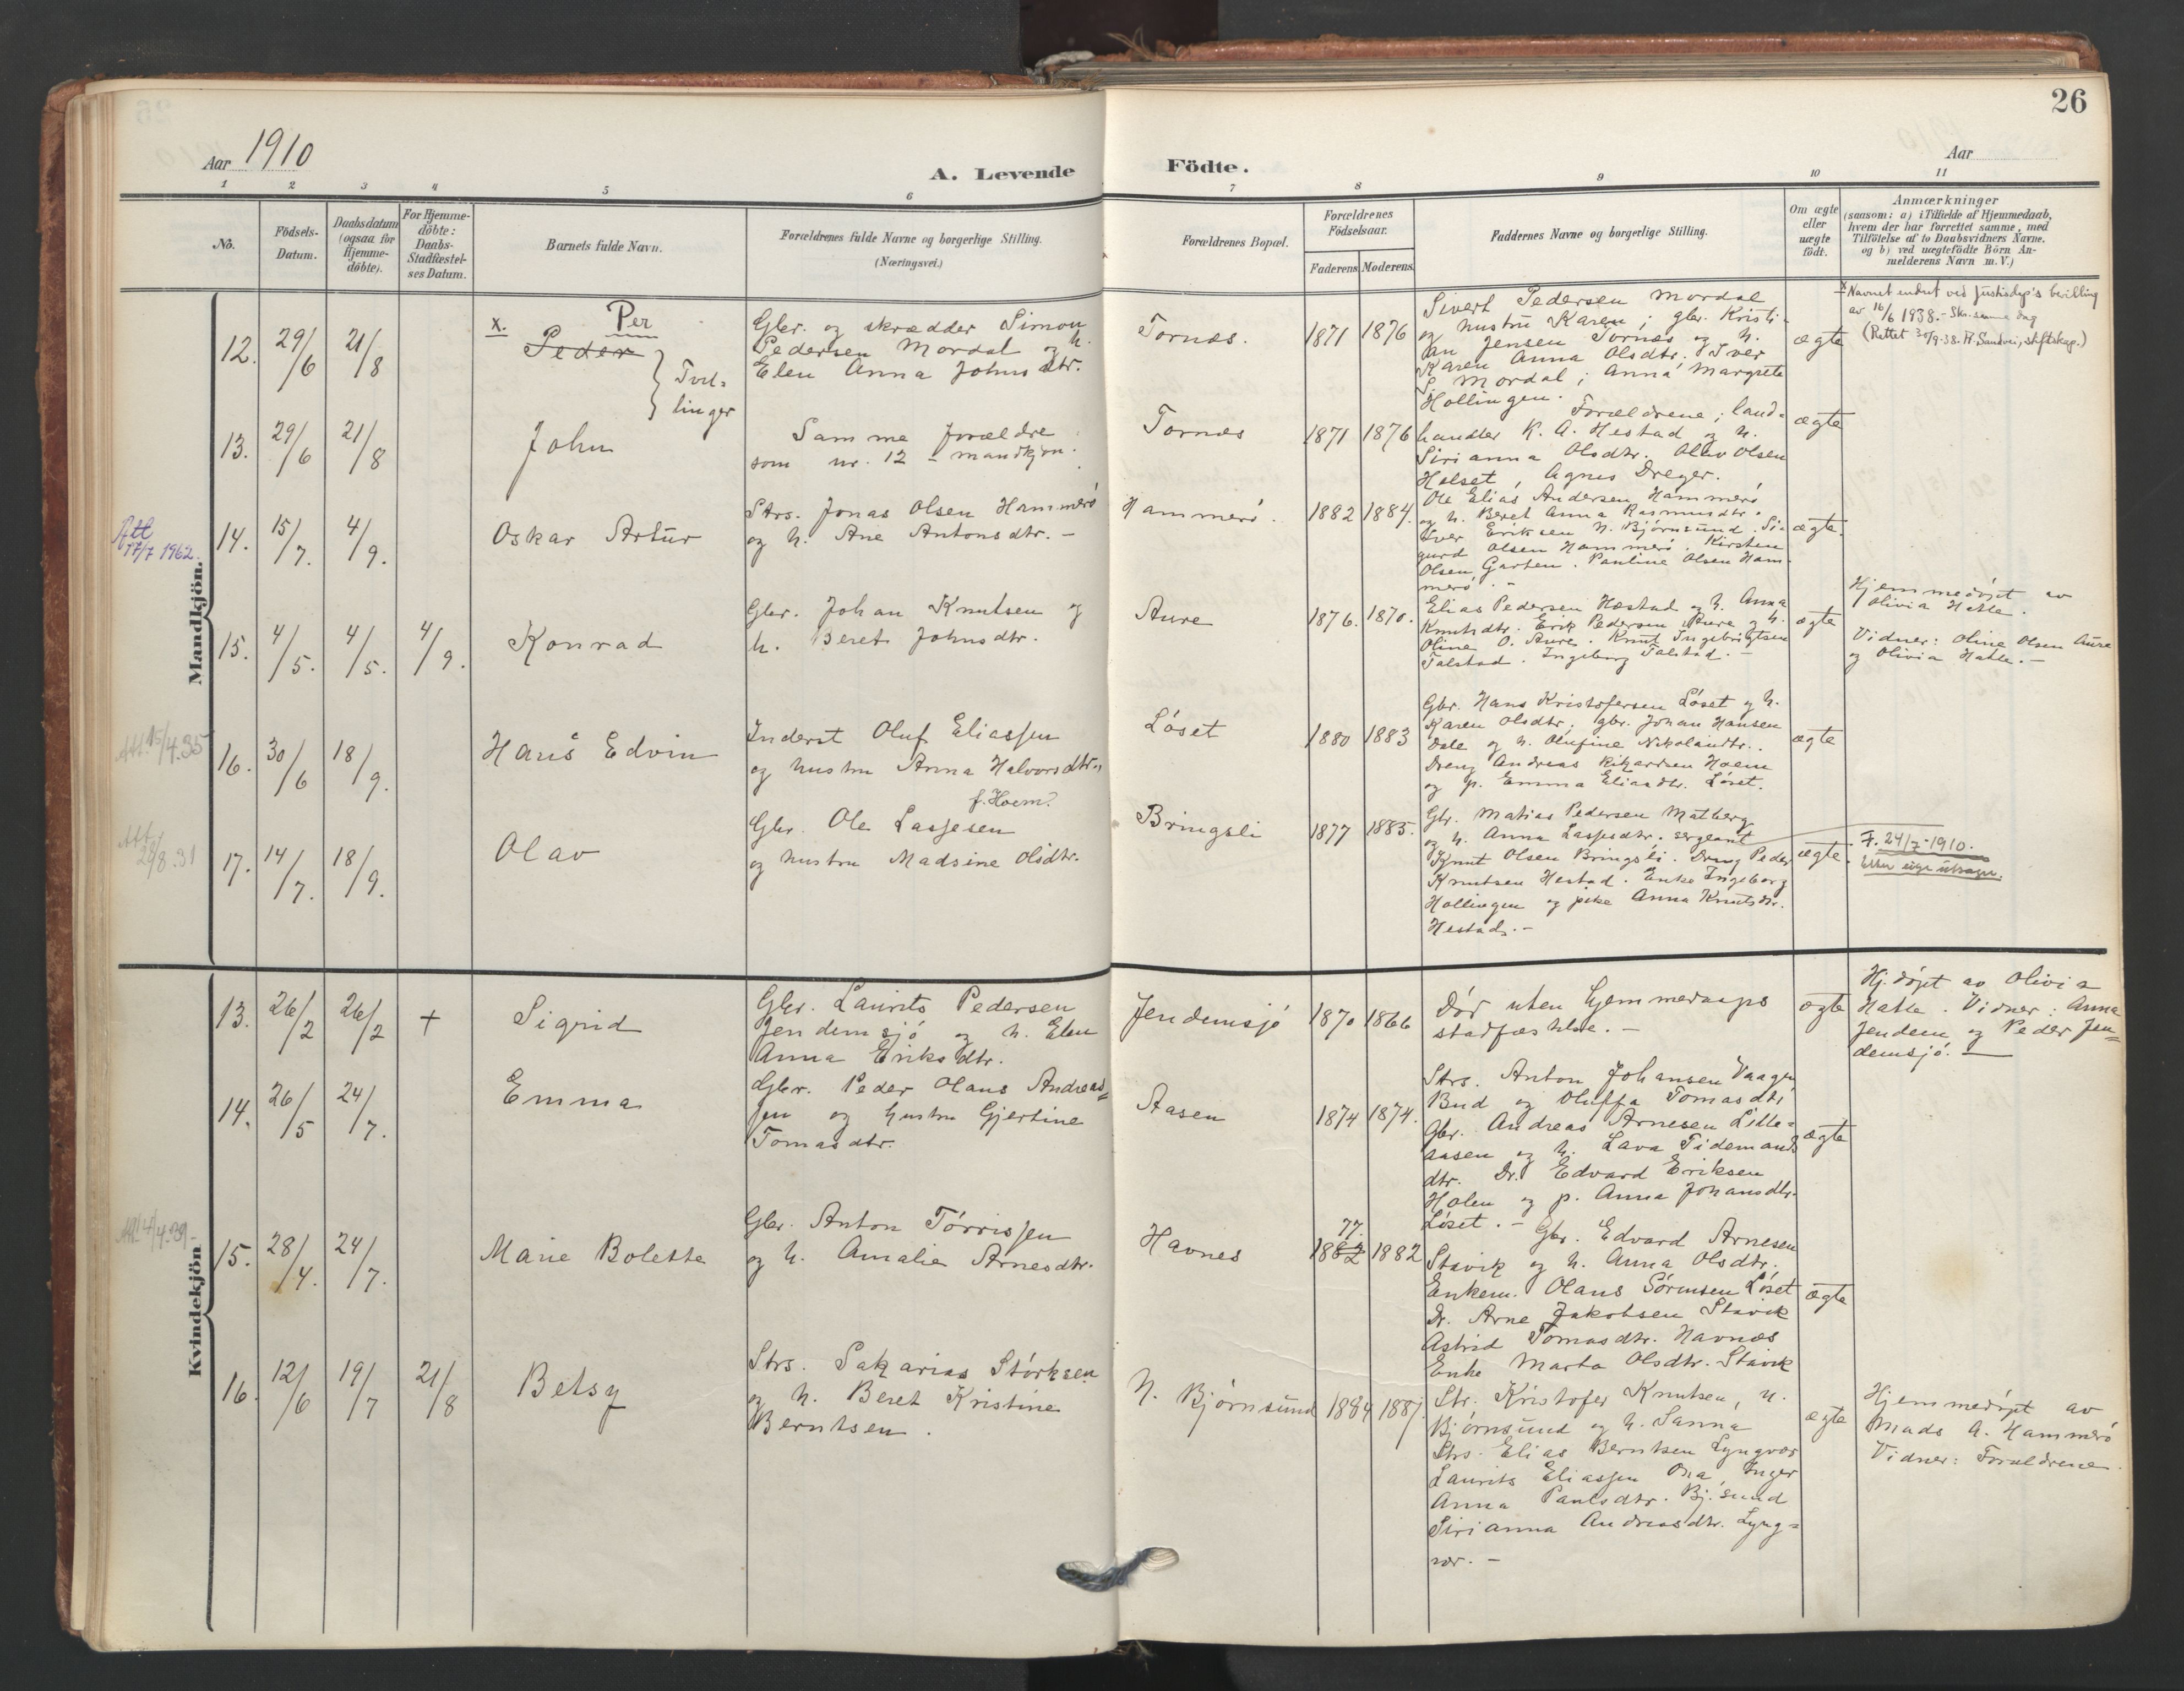 26
Aar 1910
A. Levende Födte.
Aar
1 2 3 4 5 6 7 8 9 10 11
No.
Födsels-
Datum.
Daabsdatum
(ogsaa for
Hjemme-
döbte).
For Hjemme-
döbte:
Daabs-
Stadfæstel-
ses Datum.
Barnets fulde Navn.
Forældrenes fulde Navne og borgerlige Stilling.
(Næringsvei.)
Forældrenes Bopæl.
Forældrenes
Födselsaar.
Faderens Moderens
Faddernes Navne og borgerlige Stilling.
Om ægte
eller
uægte
födt.
Anmærkninger
(saasom: a) i Tilfælde af Hjemmedaab,
hvem der har forrettet samme, med
Tilföielse af to Daabsvidners Navne,
og b) ved uægtefödte Börn An-
melderens Navn m. V.)
Mandkjön.
12. 29/6 21/8
x. Per
Peder
} Tvil-
linger
Gbr. og skrædder Simon
Pedersen Mordal og h.
Elen Anna Johnsdtr.
Tornes. 1871 1876
Sivert Pedersen Mordal
og hustru Karen; gbr. Kristi-
an Jensen Tornes og h.
Karen Anna Olsdtr. Iver
S. Mordal; Anna Margrete
Hollingen.
ægte
x Navnet endret ved Justisdep's bevilling
av 16/6 1938. - Skr. samme dag
(Rettet 30/9-38. H. Sandvei, stiftskap.)
13. 29/6 21/8
John
Samme forældre
som nr. 12 - mandkjøn.
Tornes 1871 1876
Forældrene; land-
handler K. A. Hestad og h.
Sirianna Olsdtr. Olav Olsen
Helset, Agnes Dreyer.
ægte
Att
17/7 1962.
14. 15/7. 4/9.
Oskar Artur
Strs. Jonas Olsen Hammerö
og h. Ane Antonsdtr. -
Hammerö. 1882 1884.
Ole Elias Andersen Hammerö
og h. Beret Anna Rasmusdtr.
Iver Eriksen N. Björnsund. Si-
gurd Olsen Hammerö. Kirsten
Olsen Garten. Pauline Olsen Ham-
merö. -
ægte.
15. 4/5. 4/5. 4/9.
Konrad
Gbr. Johan Knutsen og
h. Beret Johnsdtr.
Aure 1876. 1870.
Elias Pedersen Hestad og h. Anna
Knutsdtr. Erik Pedersen Aure og h.
Oline O. Aure. Knut Ingebrigtsen
Talstad. Ingeborg Talstad. -
ægte
Hjemmedøpt av
Olivia Hatle.
Vidner: Oline Olsen Aure
og Olivia Hatle. -
Att. 15/4.35
16. 30/6 18/9.
Hans Edvin
Inderst Oluf Eliassen
og hustru Anna Halvorsdtr.,
f. Hoem.
Löset 1880 1883
Gbr. Hans Kristofersen Löset og h.
Karen Olsdtr. gbr. Johan Hansen
Dale og h. Olufine Nikolaidtr.
Dreng Andreas Rikardsen Hoem
og p. Emma Eliasdtr. Löset.
ægte
Att.
29/8.31
17. 14/7. 18/9.
Olav
Gbr. Ole Lassesen
og hustru Madsine Olsdtr.
Bringsli 1877 1885.
Gbr. Matias Pedersen Malberg
og h. Anna Lassesdtr. sergeant
Knut Olsen Bringsli. Dreng Peder
Knutsen Hestad. Enke Ingeborg
Hollingen og pike Anna Knutsdtr.
Hestad. -
ægte.
F. 24/7-1910.
Kvindekjön
13. 26/2 26/2 +
Sigrid
Gbr. Laurits Pedersen
Jendemsjö og h. Elen
Anna Eriksdtr.
Jendemsjö 1870 1866
Död uten hjemmedaaps
stadfæstelse. -
ægte
Hj. döpt av Olivia
Hatle. Vidner: Anna
Jendem og Peder Jen-
demsjö. -
14. 26/5 24/7.
Emma
Gbr. Peder Olaus Andreas-
sen og hustru Gjertine
Tomasdtr.
Aasen 1874 1874.
Strs. Anton Johansen Vaagen,
Bud og Oluffa Tomasdtr
Gbr. Andreas Arnesen Lille-
aasen og h. Lava Tidemands
dtr. Dr. Edvard Eriksen
Holen og p. Anna Johansdtr.
Löset. -
ægte
Att 4/4.39-
15. 28/4. 24/7.
Marie Bolette
Gbr. Anton Törrissen
og h. Amalie Arnesdtr.
Havnes 77. 1882 1882
Gbr. Edvard Arnesen
Stavik og h. Anna Olsdtr.
Enkem. Olaus Sörensen Löset
Dr. Arne Jakobsen Stavik
Astrid Tomasdtr. Havnes
Enke Marta Olsdtr. Stavik
ægte
16. 12/6 19/7 21/8
Betsy
Strs. Sakarias Störksen
og h. Beret Kristine
Berntsen.
N. Björnsund 1884 1887.
Str. Kristofer Knutsen, N.
Björnsund og h. Sanna
Strs. Elias Berntsen Lyngvær
Laurits Eliassen Ona, Inger
Anna Paulsdtr. Bj.sund
Sirianna Andreasdtr. Lyng-
vær. -
ægte
Hjemmedöpt av
Mads A. Hammerö
Vidner: Forældrene.